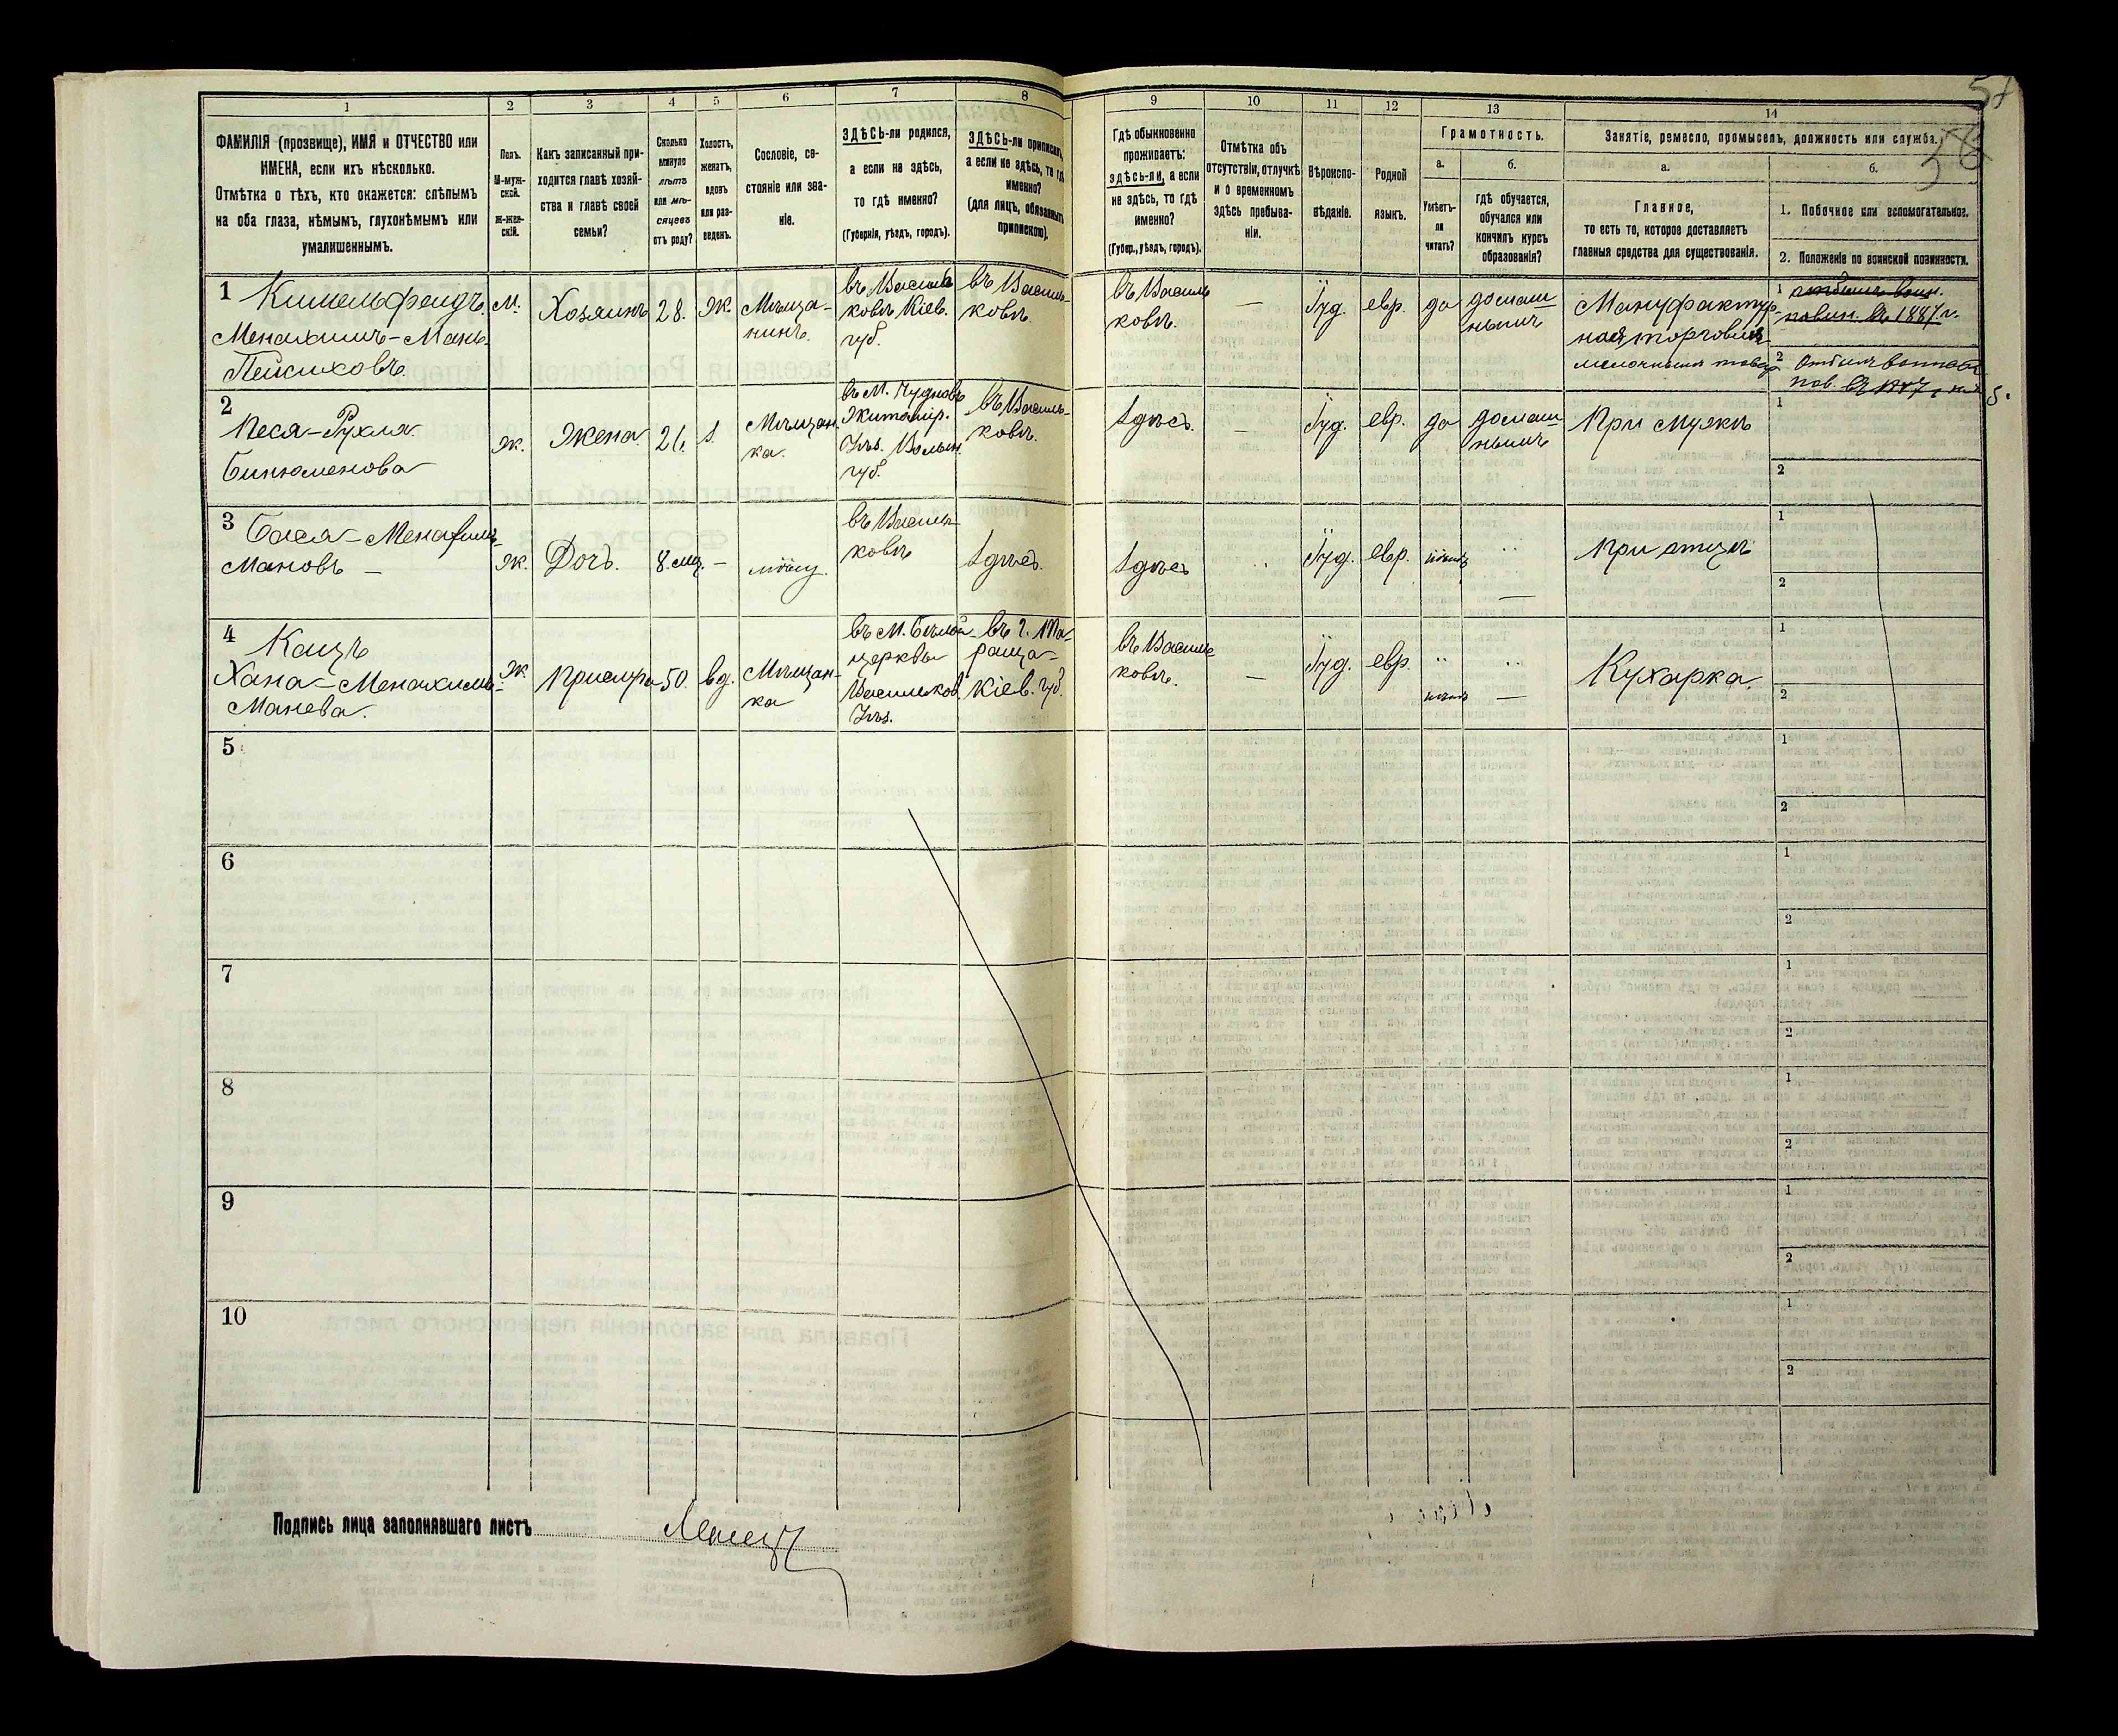 1 2 3 4 5 6 7 8 9 10 11 12 13 14
ФАМИЛІЯ (прозвище), ИМЯ и ОТЧЕСТВО или
ИМЕНА, если ихъ нѣсколько.
Отмѣтка о тѣхъ, кто окажется: слѣпымъ
на оба глаза, нѣмымъ, глухонѣмымъ или
умалишеннымъ.
Полъ.
М-муж-
ской.
Ж-жен-
скій.
Какъ записанный при-
ходится главѣ хозяй-
ства и главѣ своей
семьи?
Сколько
минуло
лѣтъ
или мѣ-
сяцевъ
отъ роду?
Холостъ,
женатъ,
вдовъ
или раз-
веденъ.
Сословіе, со-
стояніе или зва-
ніе.
ЗДѢСЬ-ли родился,
а если не здѣсь,
то гдѣ именно?
(Губернія, уѣздъ, городъ).
ЗДѢСЬ-ли приписанъ,
а если не здѣсь, то гдѣ
именно?
(для лицъ, обязанныхъ
припискою).
Гдѣ обыкновенно
проживаетъ:
здѣсь-ли, а если
не здѣсь, то гдѣ
именно?
(Губер., уѣздъ, городъ).
Отмѣтка объ
отсутствіи, отлучкѣ
и о временномъ
здѣсь пребыва-
ніи.
Вѣроиспо-
вѣданіе.
Родной
языкъ.
Грамотность.
а.
Умѣетъ-
ли
читать?
б.
Гдѣ обучается,
обучался или
кончилъ курсъ
образованія?
Занятіе, ремесло, промыселъ, должность или служба.
а.
Главное,
то есть то, которое доставляетъ
главныя средства для существованія.
б.
1. Побочное или вспомогательное.
2. Положеніе по воинской повинности.
1 Кишельфендъ
Менахимъ-Мань
Пейсиховъ
М.
Хозяинъ
28.
Ж.
Мѣща-
нинъ.
въ Василь
ковѣ Кіев.
губ.
въ Василь-
ковѣ.
въ Василь
ковѣ.
—
Іуд.
евр.
да
домаш
нымъ
Мануфактур-
ная торговля
1
повин. въ 1887 г.
2
2
Песя-Рухля
Бинюменова
Ж.
Жена
26.
Мѣщан
ка.
въ М. Чудновѣ
Житомір.
Уѣз. Волын.
губ.
въ Василь-
ковѣ.
Здѣсь.
—
Іуд.
евр.
да
домаш
нымъ
При мужѣ
1
2
3 Бася-Менахимъ-
Мановъ —
Ж.
Дочь.
8 мц.
—
въ Василь
ковѣ
Здѣсь.
Здѣсь
Іуд.
евр.
—
При отцѣ
1
2
4 Кацъ
Хана-Менахимъ-
Манева.
Ж
50.
вд.
Мѣщан-
ка
въ М. Бѣлой-
церкви
Васильков.
Уѣз.
въ г. Та-
раща-
Кіев. губ.
въ Василь
ковѣ.
—
Іуд.
евр.
—
Кухарка.
1
2
5
1
2
6
1
2
7
1
2
8
1
2
9
1
2
10
1
2
Подпись лица заполнявшаго листъ